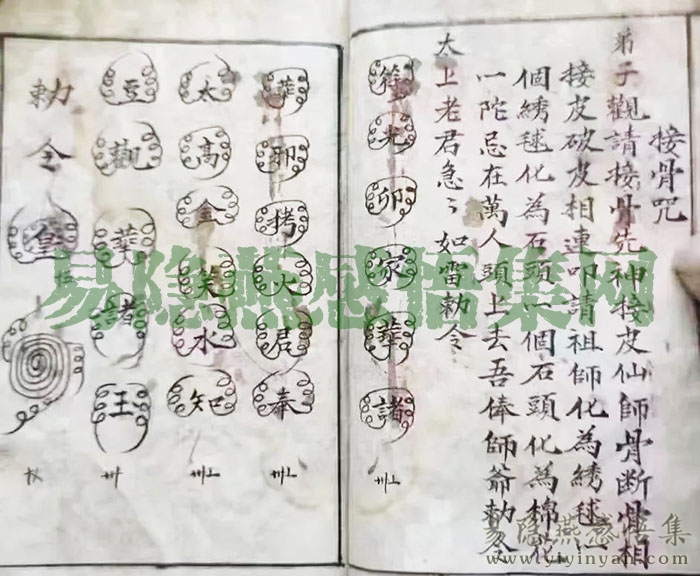 接骨咒
弟子觀請接骨先神接皮仙師骨断骨相
接皮破皮相連叩請祖師化為綉毬一
個綉毬化為石頭一個石頭化為棉花
一陀忌在萬人頭上去吾俸師爺勅令
太上老君急〻如雷勅令
光卯家諸
拷火君奉
太高金笑水知
觀諸王
勅令
易隐燕感悟集网
易隐燕感悟集
www.yiyinyan.com